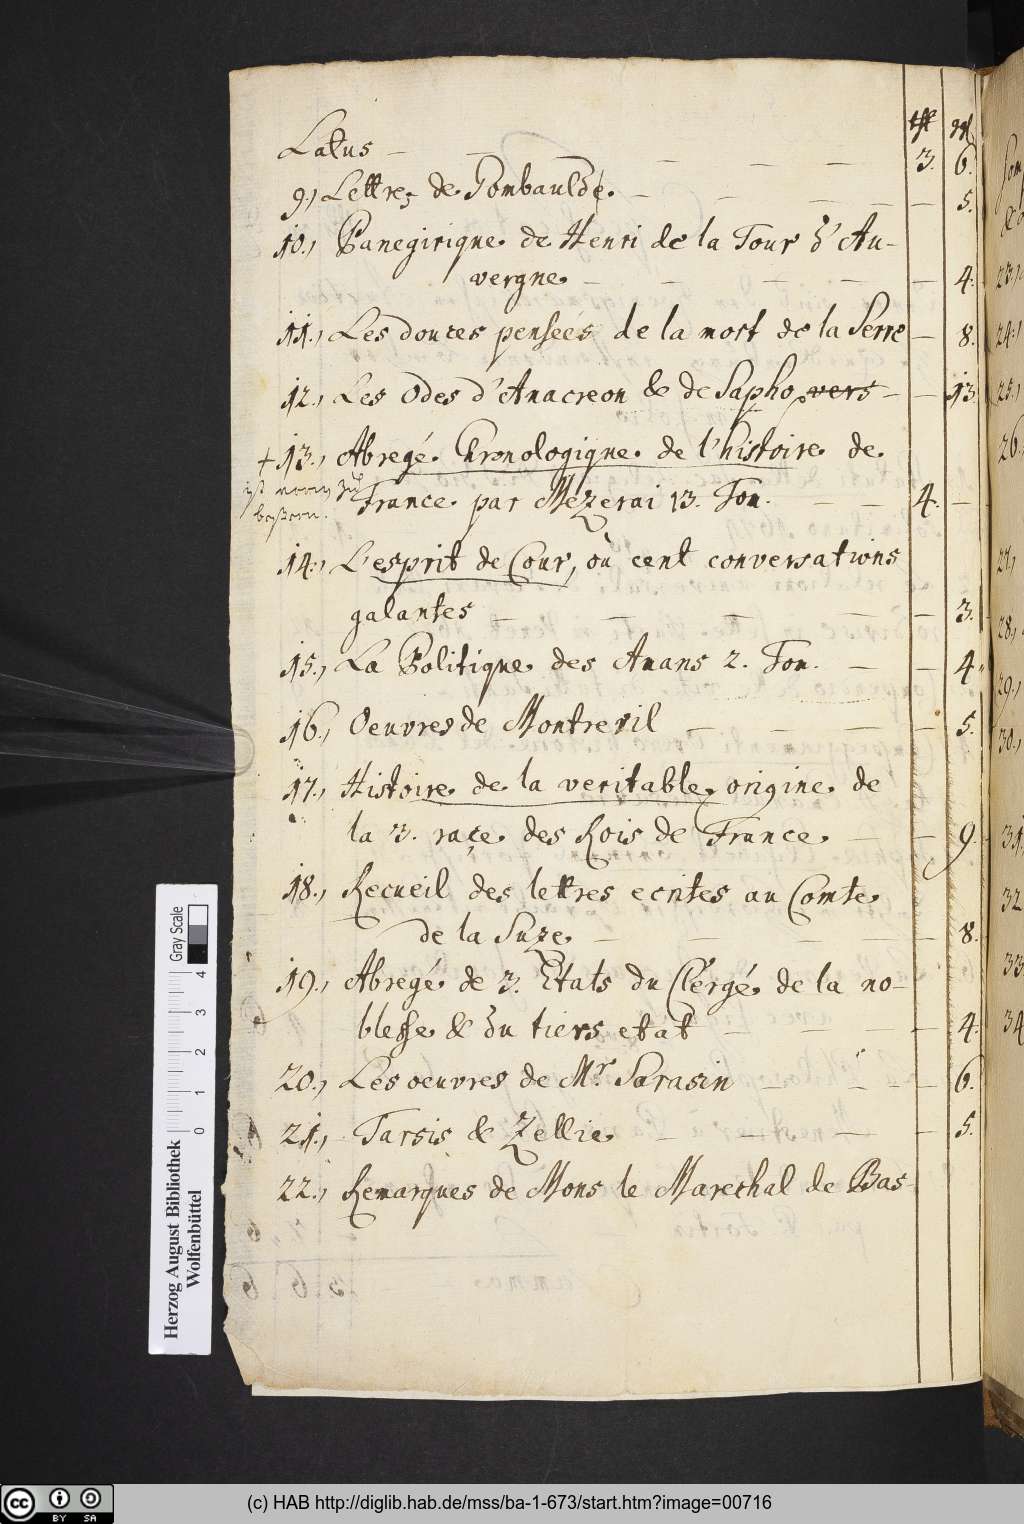 Latus — — — — — 3. 6.
9., Lettres de Gombaulde. — — — — 5.
10., Panegirique de Henri de la Tour d'Au-
vergne. — — — — 4.
11., Les douces pensées de la mort de la Serre — 8.
12., Les Odes d'Anacreon & de Sapho, vers — — 13.
+ 13., Abregé Chronologique de l'histoire de
France par Mezerai 13. Tom. — — 4. —
14., L'esprit de Cour, où cent conversations
galantes — — — — 3.
15., La Politique des Amans 2. Tom. — — 4.
16., Oeuvres de Montreuil — — — — 5.
17., Histoire de la veritable origine de
la 3. raçe des Rois de France. — — 9.
18., Recueil des lettres ecrites au Comte
de la Suze — — — — 8.
19., Abregé de 3. Etats du Clergé de la no-
blesse & du tiers etat — — — 4.
20., Les oeuvres de Mr. Sarasin — — — 6.
21., Tarsis & Zellie — — — — 5.
22., Remarques de Mons le Marechal de Bas-
Gray Scale
0 1 2 3 4
Herzog August Bibliothek
Wolfenbüttel
24.,
25.,
26
27,
28.,
29.,
30.,
31.
32
33
34
cc BY SA
(c) HAB http://diglib.hab.de/mss/ba-1-673/start.htm?image=00716